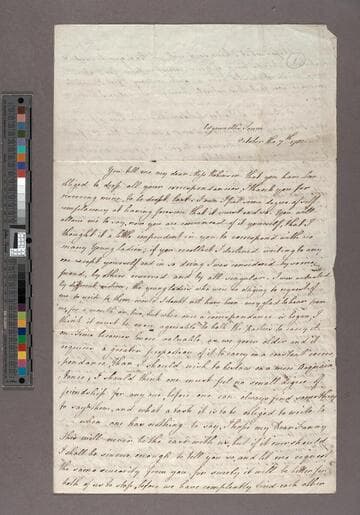 1
Edgeworths Town
October the 7th
You tell me my dear Miss Robinson that you have been
obliged to drop all your correspondences, I thank you for
reserving mine to be dropt last. I own I feel some degree of self
complacency at having foreseen that it would end so. You will
allow me to say, now you are convinced of it yourself, that I
thought it a little imprudent in you to correspond with so
many Young Ladies; if you recollect I declined writing to any
one except yourself and in so doing I was considered by some
proud, by others reserved and by all singular. I was actuated
by different motives, the young Ladies who were so obliging to request of
me to write to them would I doubt not have been very glad to hear from
me for a month or two, but when once a correspondence is begun, I
think it must be more agreeable to both the parties to carry it
on. Time becomes more valuable, as we grow older and it
requires a greater proportion of it to carry on a constant corres
pondence, than I should wish to bestow on a mere Acquain
tance; I should think one must feel no small degree of
friendship for any one before one can always find something
to say to them, and what a task it is to be obliged to write to
when one has nothing to say, I hope my Dear Fanny
this will never be the case with us, but if it ever should
I shall be sincere enough to tell you so and let me request
the same sincerity from you for surely it will be better for
both of us to stop, before we have compleatly tired each other